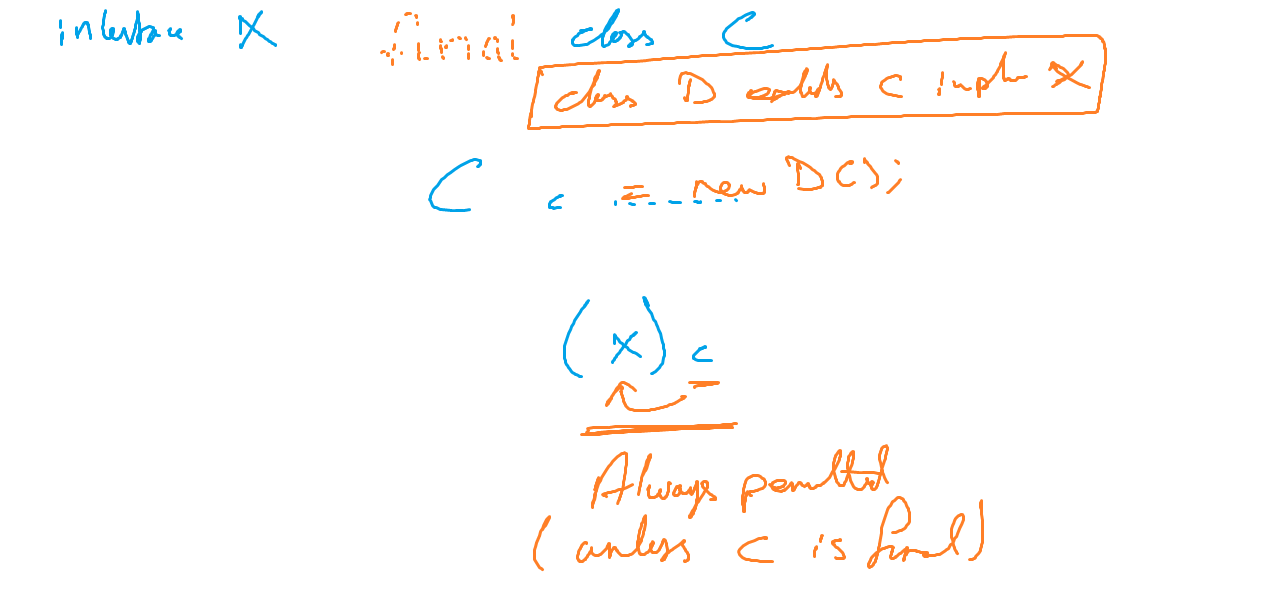 interface X final class C
class D extends C imple X
C c = new D();
(X) c
Always permitted
(unless C is final)